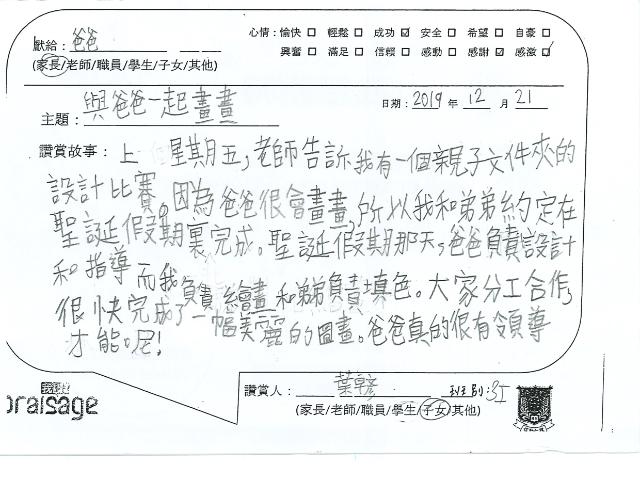 獻給：爸爸
(家長/老師/職員/學生/子女/其他)
心情：愉快 □ 輕鬆 □ 成功 ☑ 安全 □ 希望 □ 自豪 □
興奮 □ 滿足 □ 信賴 □ 感動 □ 感謝 ☑ 感激 ☑
主題：與爸爸一起畫畫
日期：2019 年 12 月 21
讚賞故事：上星期五，老師告訴我有一個親子文件夾的
設計比賽。因為爸爸很會畫畫，所以我和弟弟約定在
聖誕假期裏完成。聖誕假期那天，爸爸負責設計
和指導而我負責繪畫和弟弟負責填色。大家分工合作，
很快完成了一幅美麗的圖畫。爸爸真的很有領導
才能呢！
praisage
讚賞人：葉
班別：3I
(家長/老師/職員/學生/子女/其他)